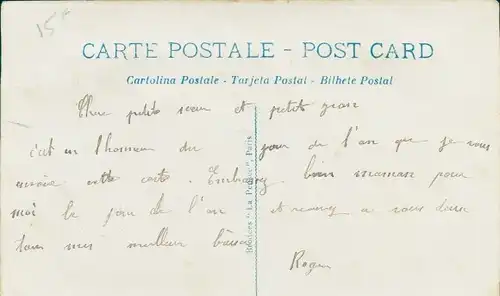 15F
CARTE POSTALE - POST CARD
Cartolina Postale - Tarjeta Postal - Bilhete Postal
Chere petite soeur et petit
c'est en l'honneur du jour de l'an que je vous
envoie cette carte. Embrassez bien maman pour
moi le jour de l'an et recevez a vous deux
tous mes meilleur baiser
Roger
Broders "La Pensée", Paris